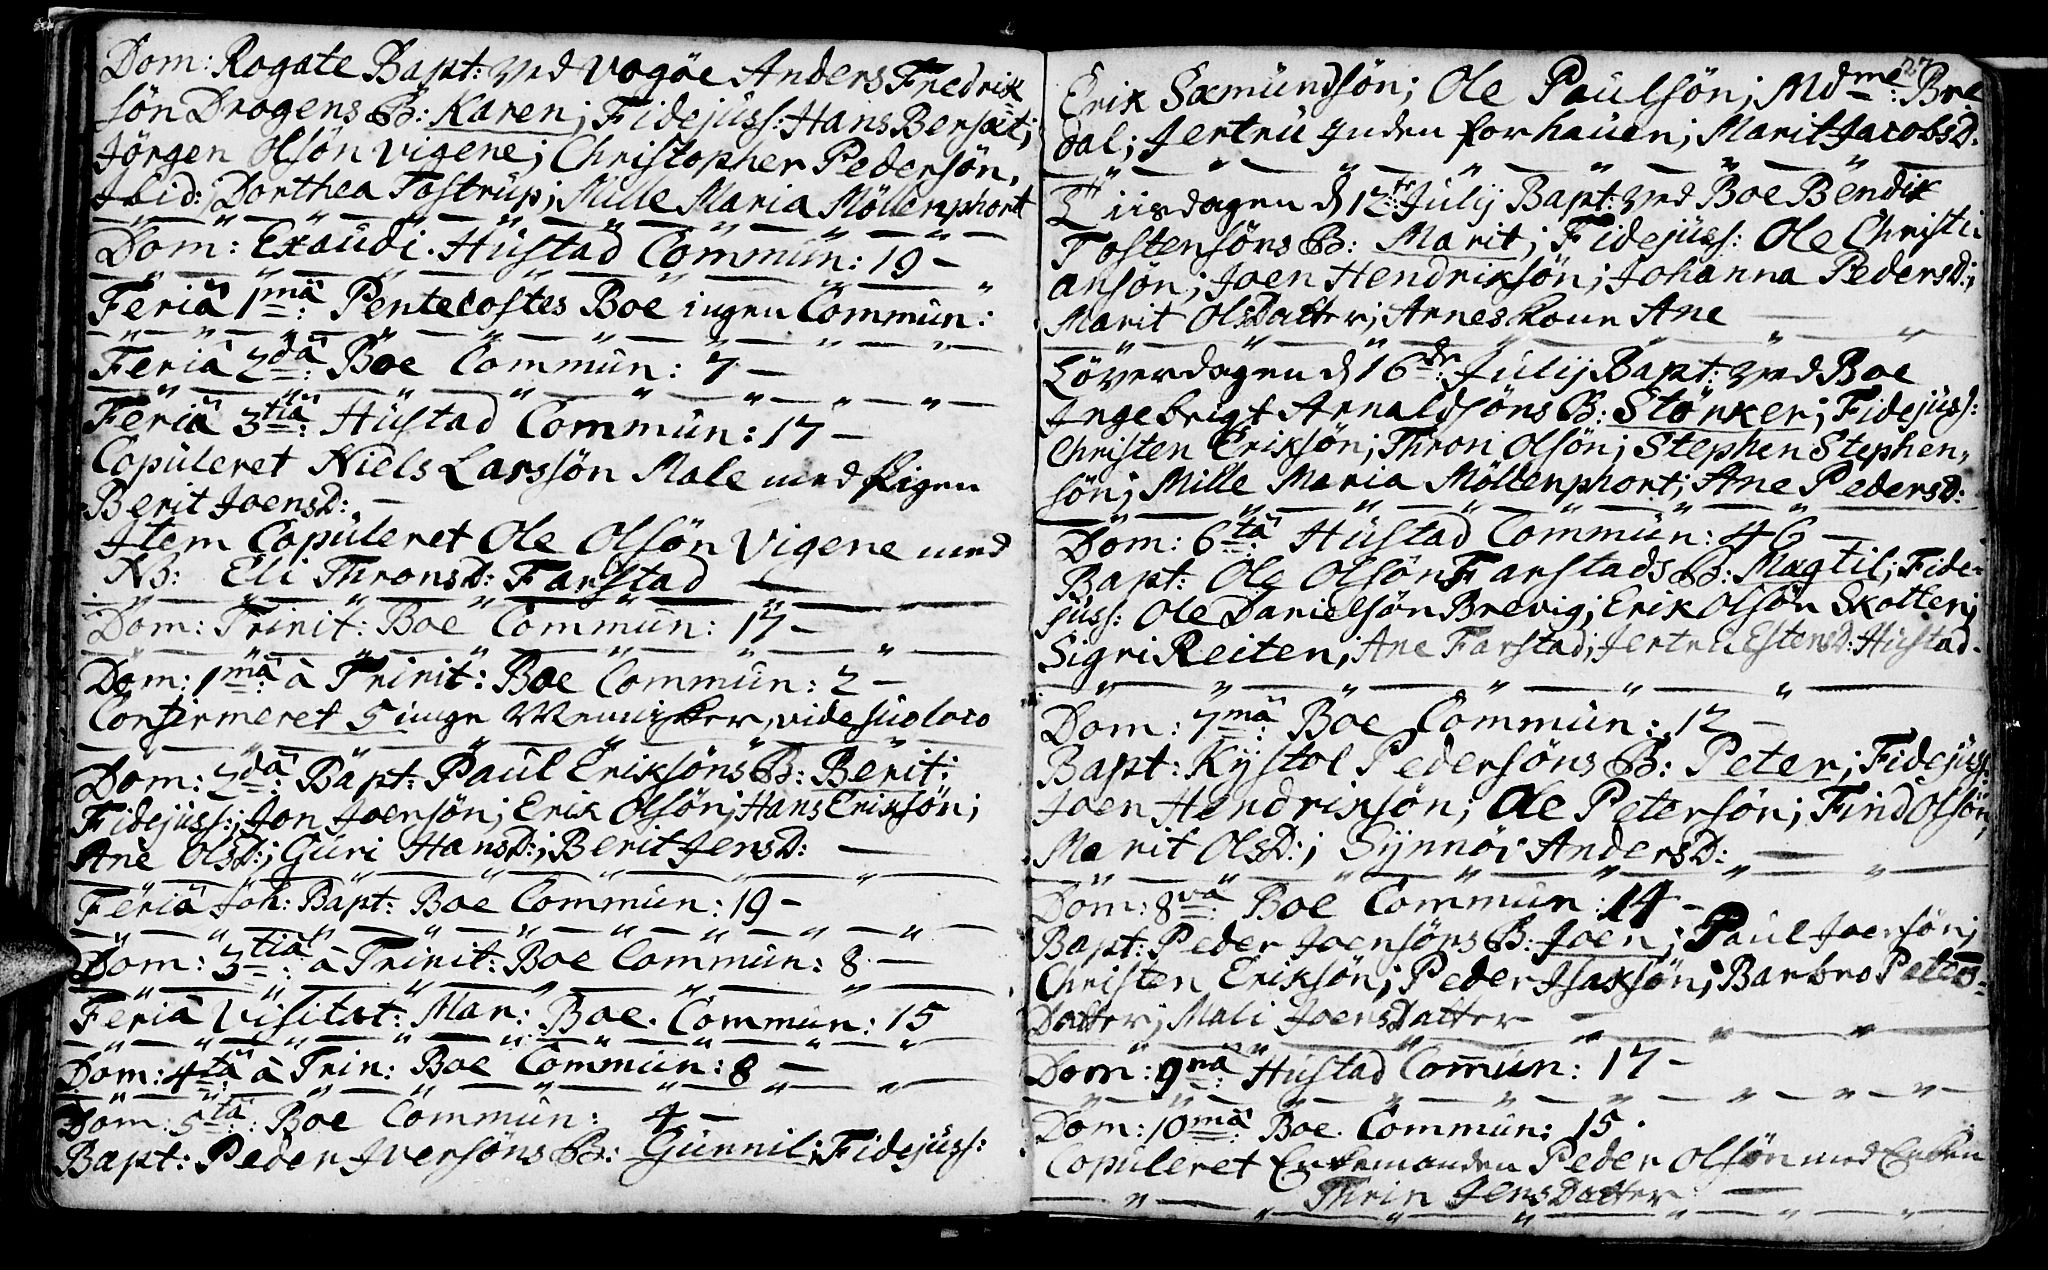 Dom: Rogate Bapt: ved Vogöe Anders Fredrik
sön Drogens B: Karen; Fidejuss: Hans Bersæt;
Jörgen Olsön Vigene; Christopher Pedersön,
Ibid: Dorthea Tostrup; Mille Maria Möllenphort
Dom: Exaudi. Hustad Commun: 19 –
Feriâ 1mâ: Pentecostes Boe ingen Commun:
Feriâ 2dâ: Boe Commun: 7 –
Feriâ 3tiâ: Hustad Commun: 17 –
Copuleret Niels Larssön Male med Pigen
Berit JoensD: –
Item Copuleret Ole Olsön Vigene med
NB: Eli ThronsD: Farstad –
Dom: Trinit: Boe Commun: 17 –
Dom: 1mâ: à Trinit: Boe Commun: 2 –
Confirmeret 5 unge Mennisker, vide suo loco
Dom: 2dâ: Bapt: Paul Eriksöns B: Berit:
Fidejuss:; Jon Joensön; Erik Olsön; Hans Eriksön;
Ane OlsD:; Guri HansD:; Berit JensD: –
Feriâ Joh: Bapt: Boe Commun: 19 –
Dom: 3tiâ: à Trinit: Boe Commun: 8 –
Feriâ Visitat: Mar: Boe. Commun: 15
Dom: 4tâ à Trin: Boe Commun: 8 –
Dom: 5tâ: Boe Commun: 4 –
Bapt: Peder Iversöns B: Gunnil; Fidejuss:
27
Erik Sæmundsön; Ole Paulsön; Mdme: Bre
dal; Jertru Inden forhauen; Marit JacobsD:
Tiisdagen d 12te Julij Bapt: ved Boe Bendix
Tostensöns B: Marit; Fidejuss: Ole Christi
ansön; Joen Hendriksön; Johanna PedersD:;
Marit OlsDatter; Arnes Kone Ane –
Löverdagen d 16de: Julij Bapt: ved Boe
Ingebrigt Arnaldsöns B: Störker; Fidejuss:
Christen Eriksön; Thron Olsön; Stephen Stephen,
sön; Mille Maria Möllenphort; Ane PedersD:
Dom: 6tâ Hustad Commun: 46 –
Bapt: Ole Olsön Farstads B: Magtil; Fide-
juss: Ole Danielsön Brevig; Erik Olsön Skotten;
Sigri Reiten; Ane Farstad; Jertru EstensD: Hustad.
Dom: 7mâ: Boe Commun: 12 –
Bapt: Kystol Pedersöns B: Peter; Fidejuss:
Joen Hendriksön; Ole Petersön; Find Olsön;
Marit OlsD:; Synnöi AndersD: –
Dom: 8vâ: Boe Commun: 14 –
Bapt: Peder Joensöns B: Joen; Paul Joensön;
Christen Eriksön; Peder Isaksön; Barbro Peters-
Datter; Mali JoensDatter –
Dom: 9nâ: Hustad Comun: 17 –
Dom: 10mâ: Boe. Commun: 15.
Copuleret Enkemanden Peder Olsön med Enken
Thrin JensDatter –